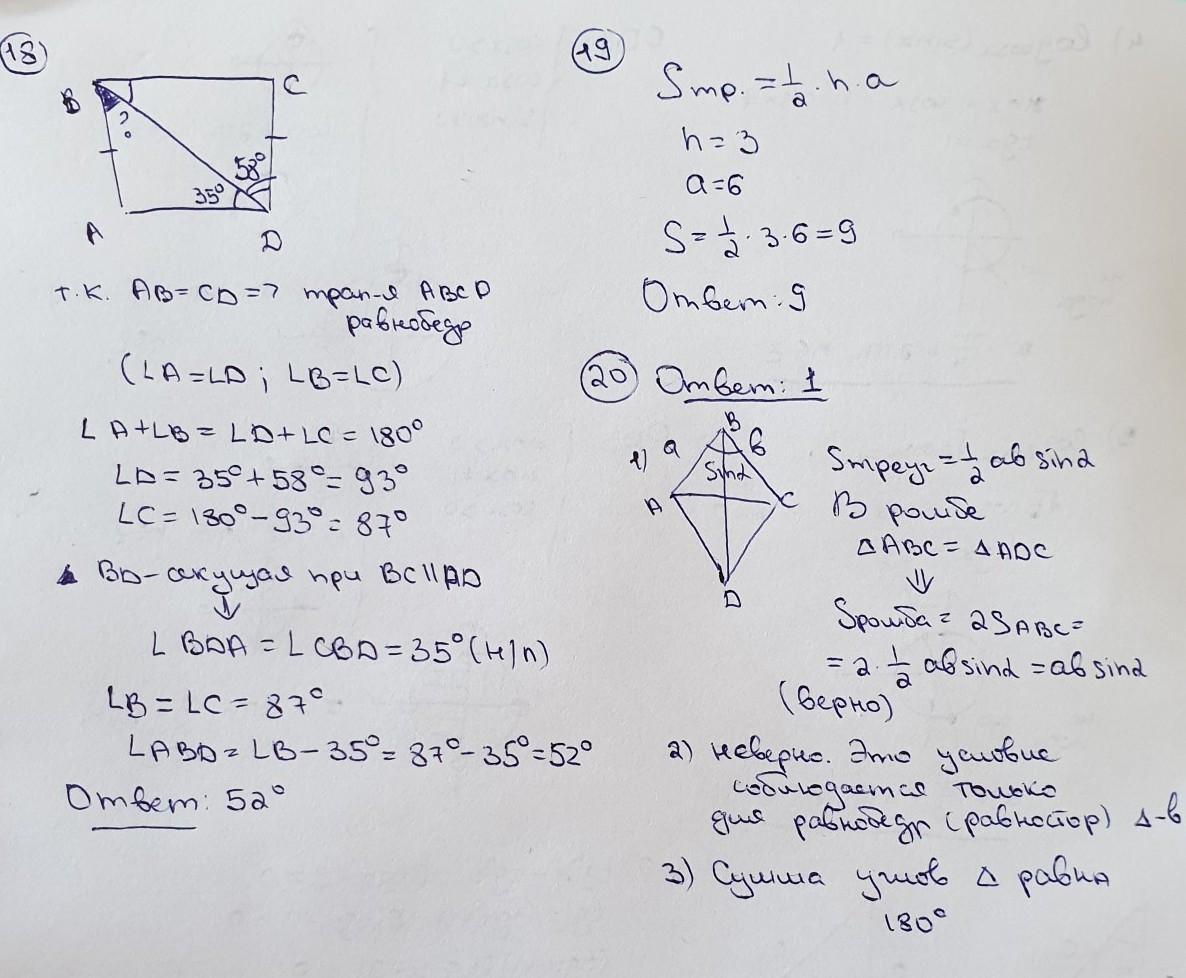 18)
B
C
?
58°
35°
A
D
т.к. AB=CD=> трап-я ABCD
равнобедр
(∠A=∠D; ∠B=∠C)
∠A+∠B=∠D+∠C=180°
∠D=35°+58°=93°
∠C=180°-93°=87°
BD-секущая при BC||AD
⇓
∠BDA=∠CBD=35°(н/л)
∠B=∠C=87°
∠ABD=∠B-35°=87°-35°=52°
Ответ: 52°
19
Sтр.=1/2·h·a
h=3
a=6
S=1/2·3·6=9
Ответ: 9
20 Ответ: 1
1)
B
a
b
Sinα
A
C
D
Sтреуг=1/2absinα
В ромбе
△ABC=△ADC
⇓
Sромба=2SABC=
=2·1/2absinα=absinα
(верно)
2) неверно. Это условие
соблюдается только
для равнобедр (равностор) △-в
3) Сумма углов △ равна
180°